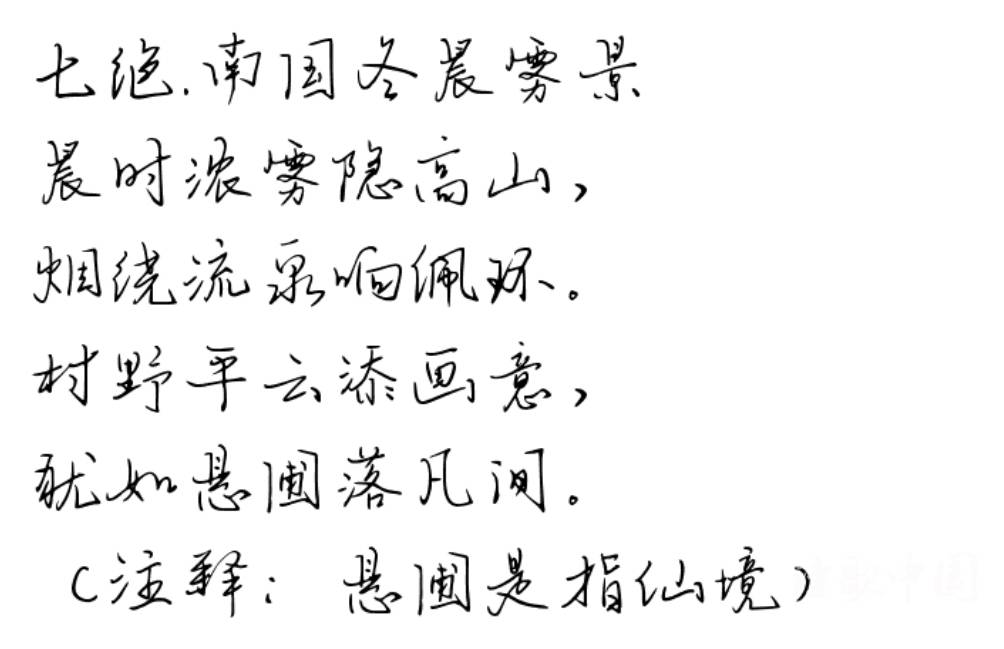 七绝.南国冬晨雾景
晨时浓雾隐高山，
烟绕流泉响佩环。
村野平云添画意，
犹如悬圃落凡间。
（注释：悬圃是指仙境）